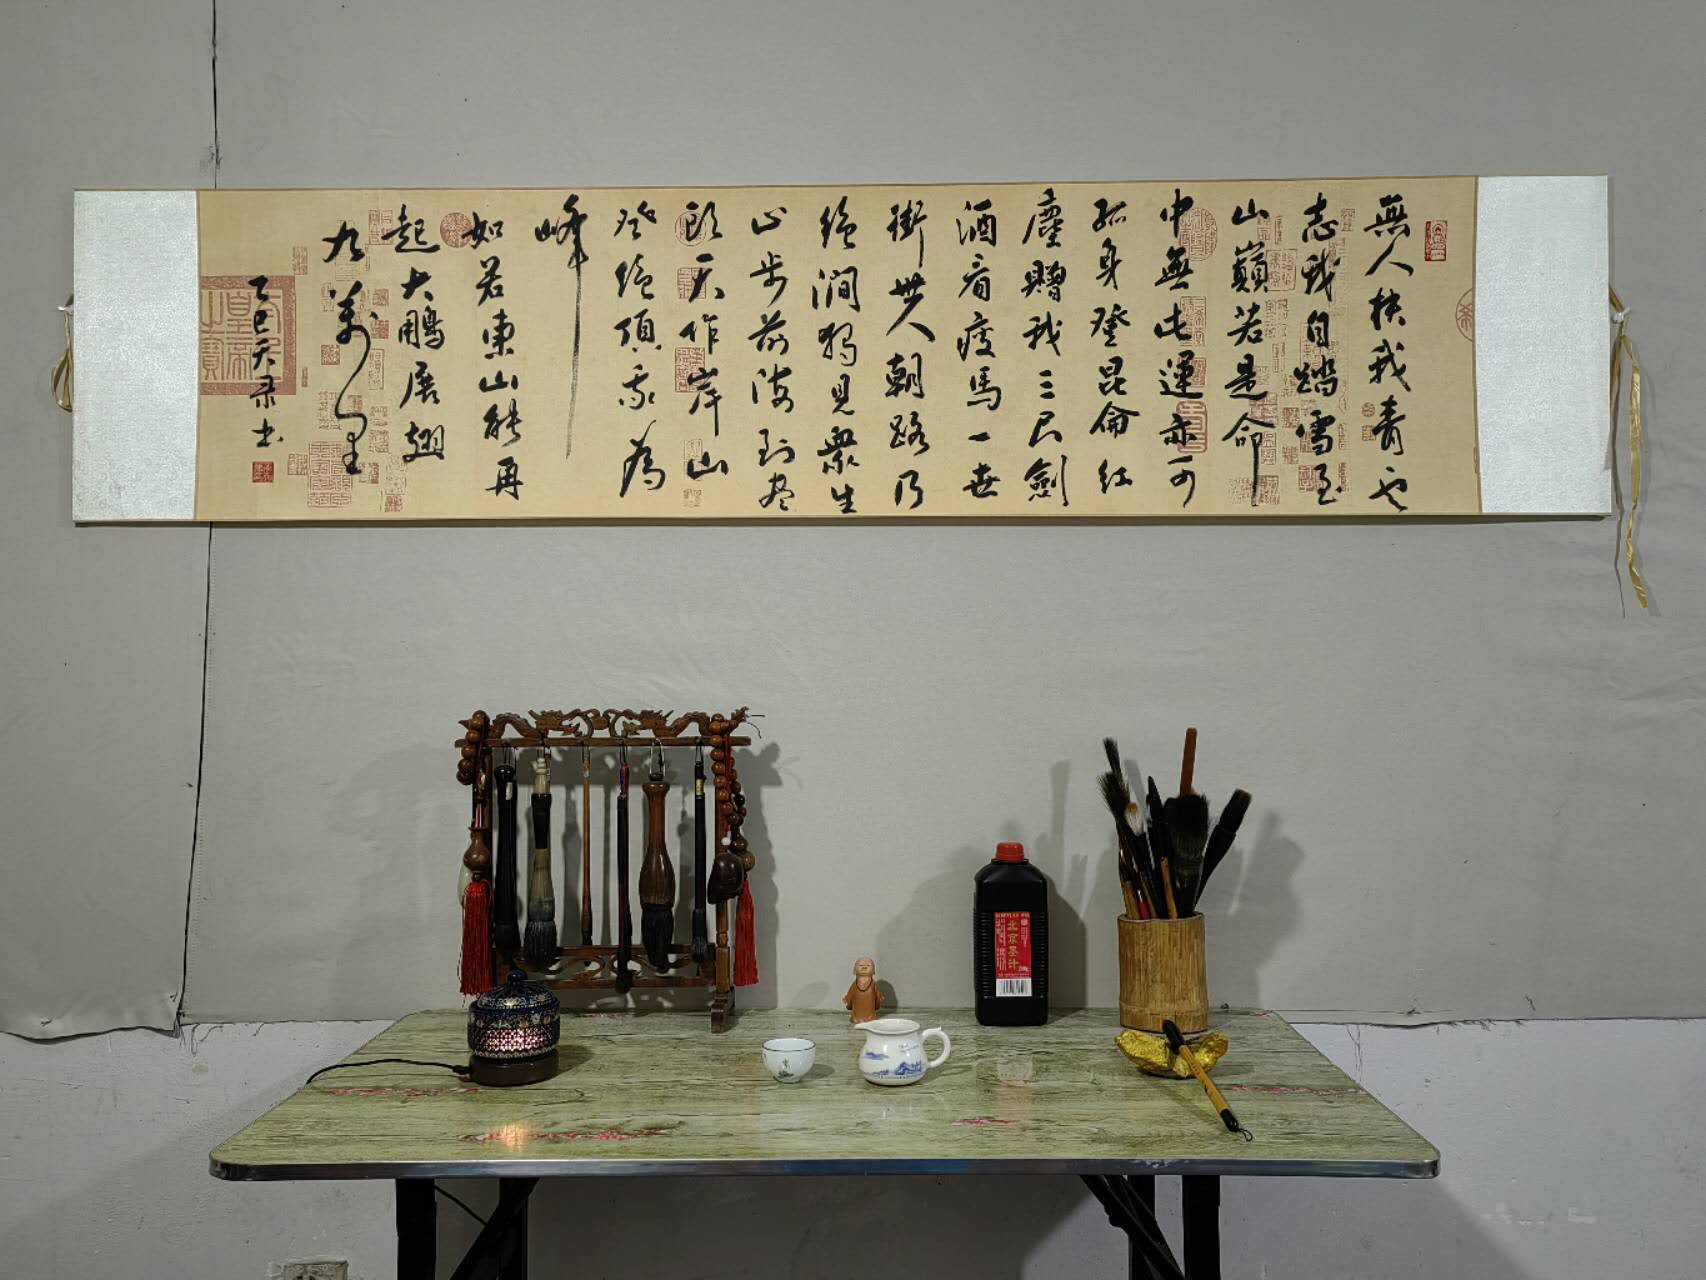 無人扶我青雲
志我自踏雪至
山巔若是命
中無此運亦可
孤身登昆侖紅
塵贈我三尺劍
酒看瘦馬一世
街世人朝路乃
絕澗獨見眾生
止步前海到盡
頭天作岸山
登絕頂我為
峰
如若東山能再
起大鵬展翅
九萬里
乙巳天录书
北京墨汁